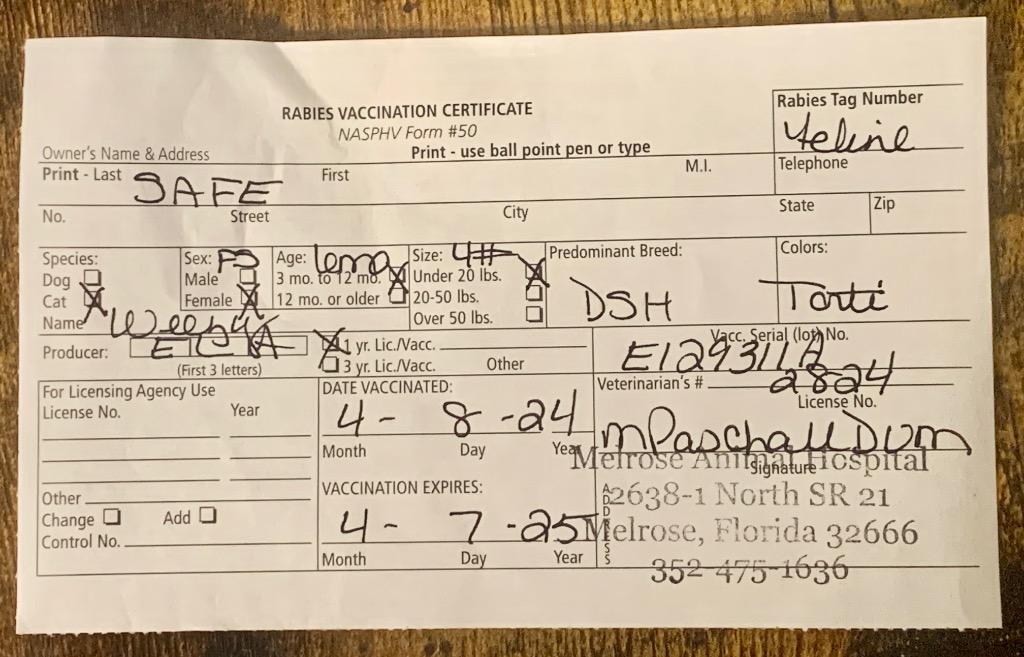 RABIES VACCINATION CERTIFICATE
NASPHV Form #50
Rabies Tag Number
Feline
Owner's Name & Address
Print - use ball point pen or type
Print - Last SAFE First M.I. Telephone
No. Street City State Zip
Species: Sex: FS Age: Size: 4# Predominant Breed: Colors:
Dog Male 3 mo. to 12 mo. Under 20 lbs.
Cat Female 12 mo. or older 20-50 lbs. DSH Torti
Name Over 50 lbs.
Producer: E L A 1 yr. Lic./Vacc. Vacc. Serial (lot) No.
(First 3 letters) 3 yr. Lic./Vacc. Other
For Licensing Agency Use DATE VACCINATED: Veterinarian's # 2824
License No. Year License No.
4 - 8 - 24
Month Day Year
MPaschall DVM
Signature
Melrose Animal Hospital
Other
VACCINATION EXPIRES:
ADDRESS
2638-1 North SR 21
Change Add
4 - 7 - 25
Melrose, Florida 32666
Control No.
Month Day Year
352-475-1636